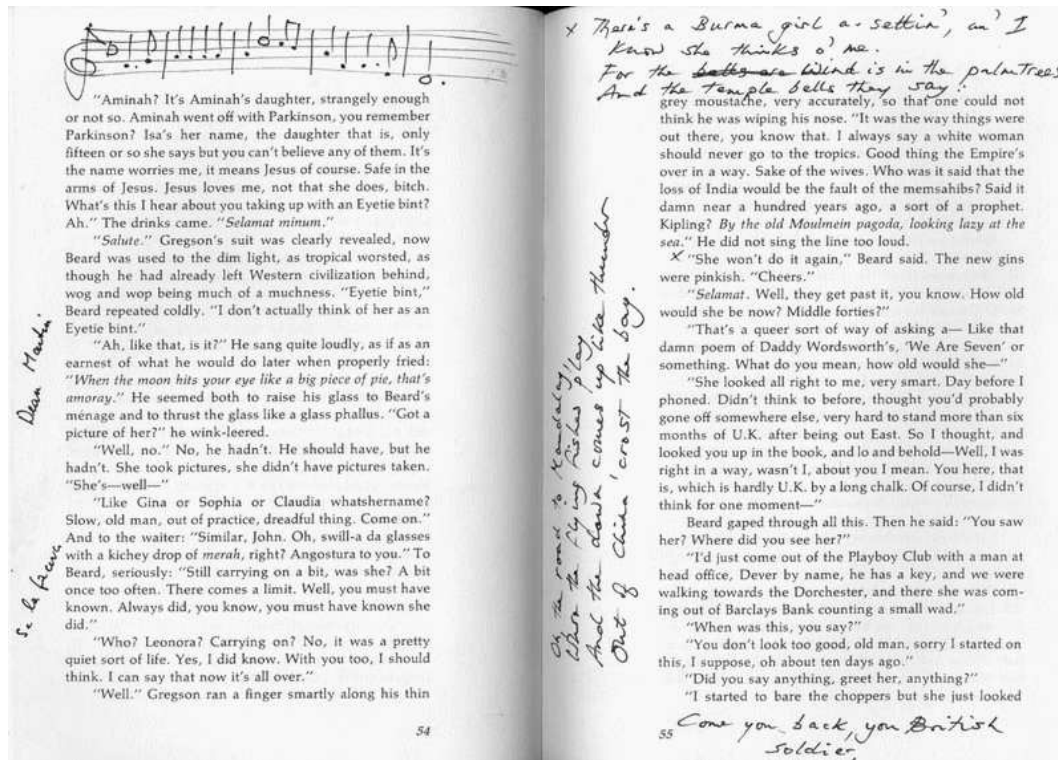 "Aminah? It's Aminah's daughter, strangely enough
or not so. Aminah went off with Parkinson, you remember
Parkinson? Isa's her name, the daughter that is, only
fifteen or so she says but you can't believe any of them. It's
the name worries me, it means Jesus of course. Safe in the
arms of Jesus. Jesus loves me, not that she does, bitch.
What's this I hear about you taking up with an Eyetie bint?
Ah." The drinks came. "Selamat minum."
"Salute." Gregson's suit was clearly revealed, now
Beard was used to the dim light, as tropical worsted, as
though he had already left Western civilization behind,
wog and wop being much of a muchness. "Eyetie bint,"
Beard repeated coldly. "I don't actually think of her as an
Eyetie bint."
"Ah, like that, is it?" He sang quite loudly, as if as an
earnest of what he would do later when properly fried:
"When the moon hits your eye like a big piece of pie, that's
amoray." He seemed both to raise his glass to Beard's
ménage and to thrust the glass like a glass phallus. "Got a
picture of her?" he wink-leered.
"Well, no." No, he hadn't. He should have, but he
hadn't. She took pictures, she didn't have pictures taken.
"She's—well—"
"Like Gina or Sophia or Claudia whatshername?
Slow, old man, out of practice, dreadful thing. Come on."
And to the waiter: "Similar, John. Oh, swill-a da glasses
with a kichey drop of merah, right? Angostura to you." To
Beard, seriously: "Still carrying on a bit, was she? A bit
once too often. There comes a limit. Well, you must have
known. Always did, you know, you must have known she
did."
"Who? Leonora? Carrying on? No, it was a pretty
quiet sort of life. Yes, I did know. With you too, I should
think. I can say that now it's all over."
"Well." Gregson ran a finger smartly along his thin
54
Dean Martin
x There's a Burma girl a-settin', an' I
know she thinks o' me.
For the bells are Wind is in the palmtrees
And the temple bells they say:
grey moustache, very accurately, so that one could not
think he was wiping his nose. "It was the way things were
out there, you know that. I always say a white woman
should never go to the tropics. Good thing the Empire's
over in a way. Sake of the wives. Who was it said that the
loss of India would be the fault of the memsahibs? Said it
damn near a hundred years ago, a sort of a prophet.
Kipling? By the old Moulmein pagoda, looking lazy at the
sea." He did not sing the line too loud.
x "She won't do it again," Beard said. The new gins
were pinkish. "Cheers."
"Selamat. Well, they get past it, you know. How old
would she be now? Middle forties?"
"That's a queer sort of way of asking a— Like that
damn poem of Daddy Wordsworth's, 'We Are Seven' or
something. What do you mean, how old would she—"
"She looked all right to me, very smart. Day before I
phoned. Didn't think to before, thought you'd probably
gone off somewhere else, very hard to stand more than six
months of U.K. after being out East. So I thought, and
looked you up in the book, and lo and behold—Well, I was
right in a way, wasn't I, about you I mean. You here, that
is, which is hardly U.K. by a long chalk. Of course, I didn't
think for one moment—"
Beard gaped through all this. Then he said: "You saw
her? Where did you see her?"
"I'd just come out of the Playboy Club with a man at
head office, Dever by name, he has a key, and we were
walking towards the Dorchester, and there she was com-
ing out of Barclays Bank counting a small wad."
"When was this, you say?"
"You don't look too good, old man, sorry I started on
this, I suppose, oh about ten days ago."
"Did you say anything, greet her, anything?"
"I started to bare the choppers but she just looked
55
Come you back, you British
soldier
On the road to Mandalay,
Where the flying fishes play
And the dawn comes up like thunder
Out of China 'crost the bay.